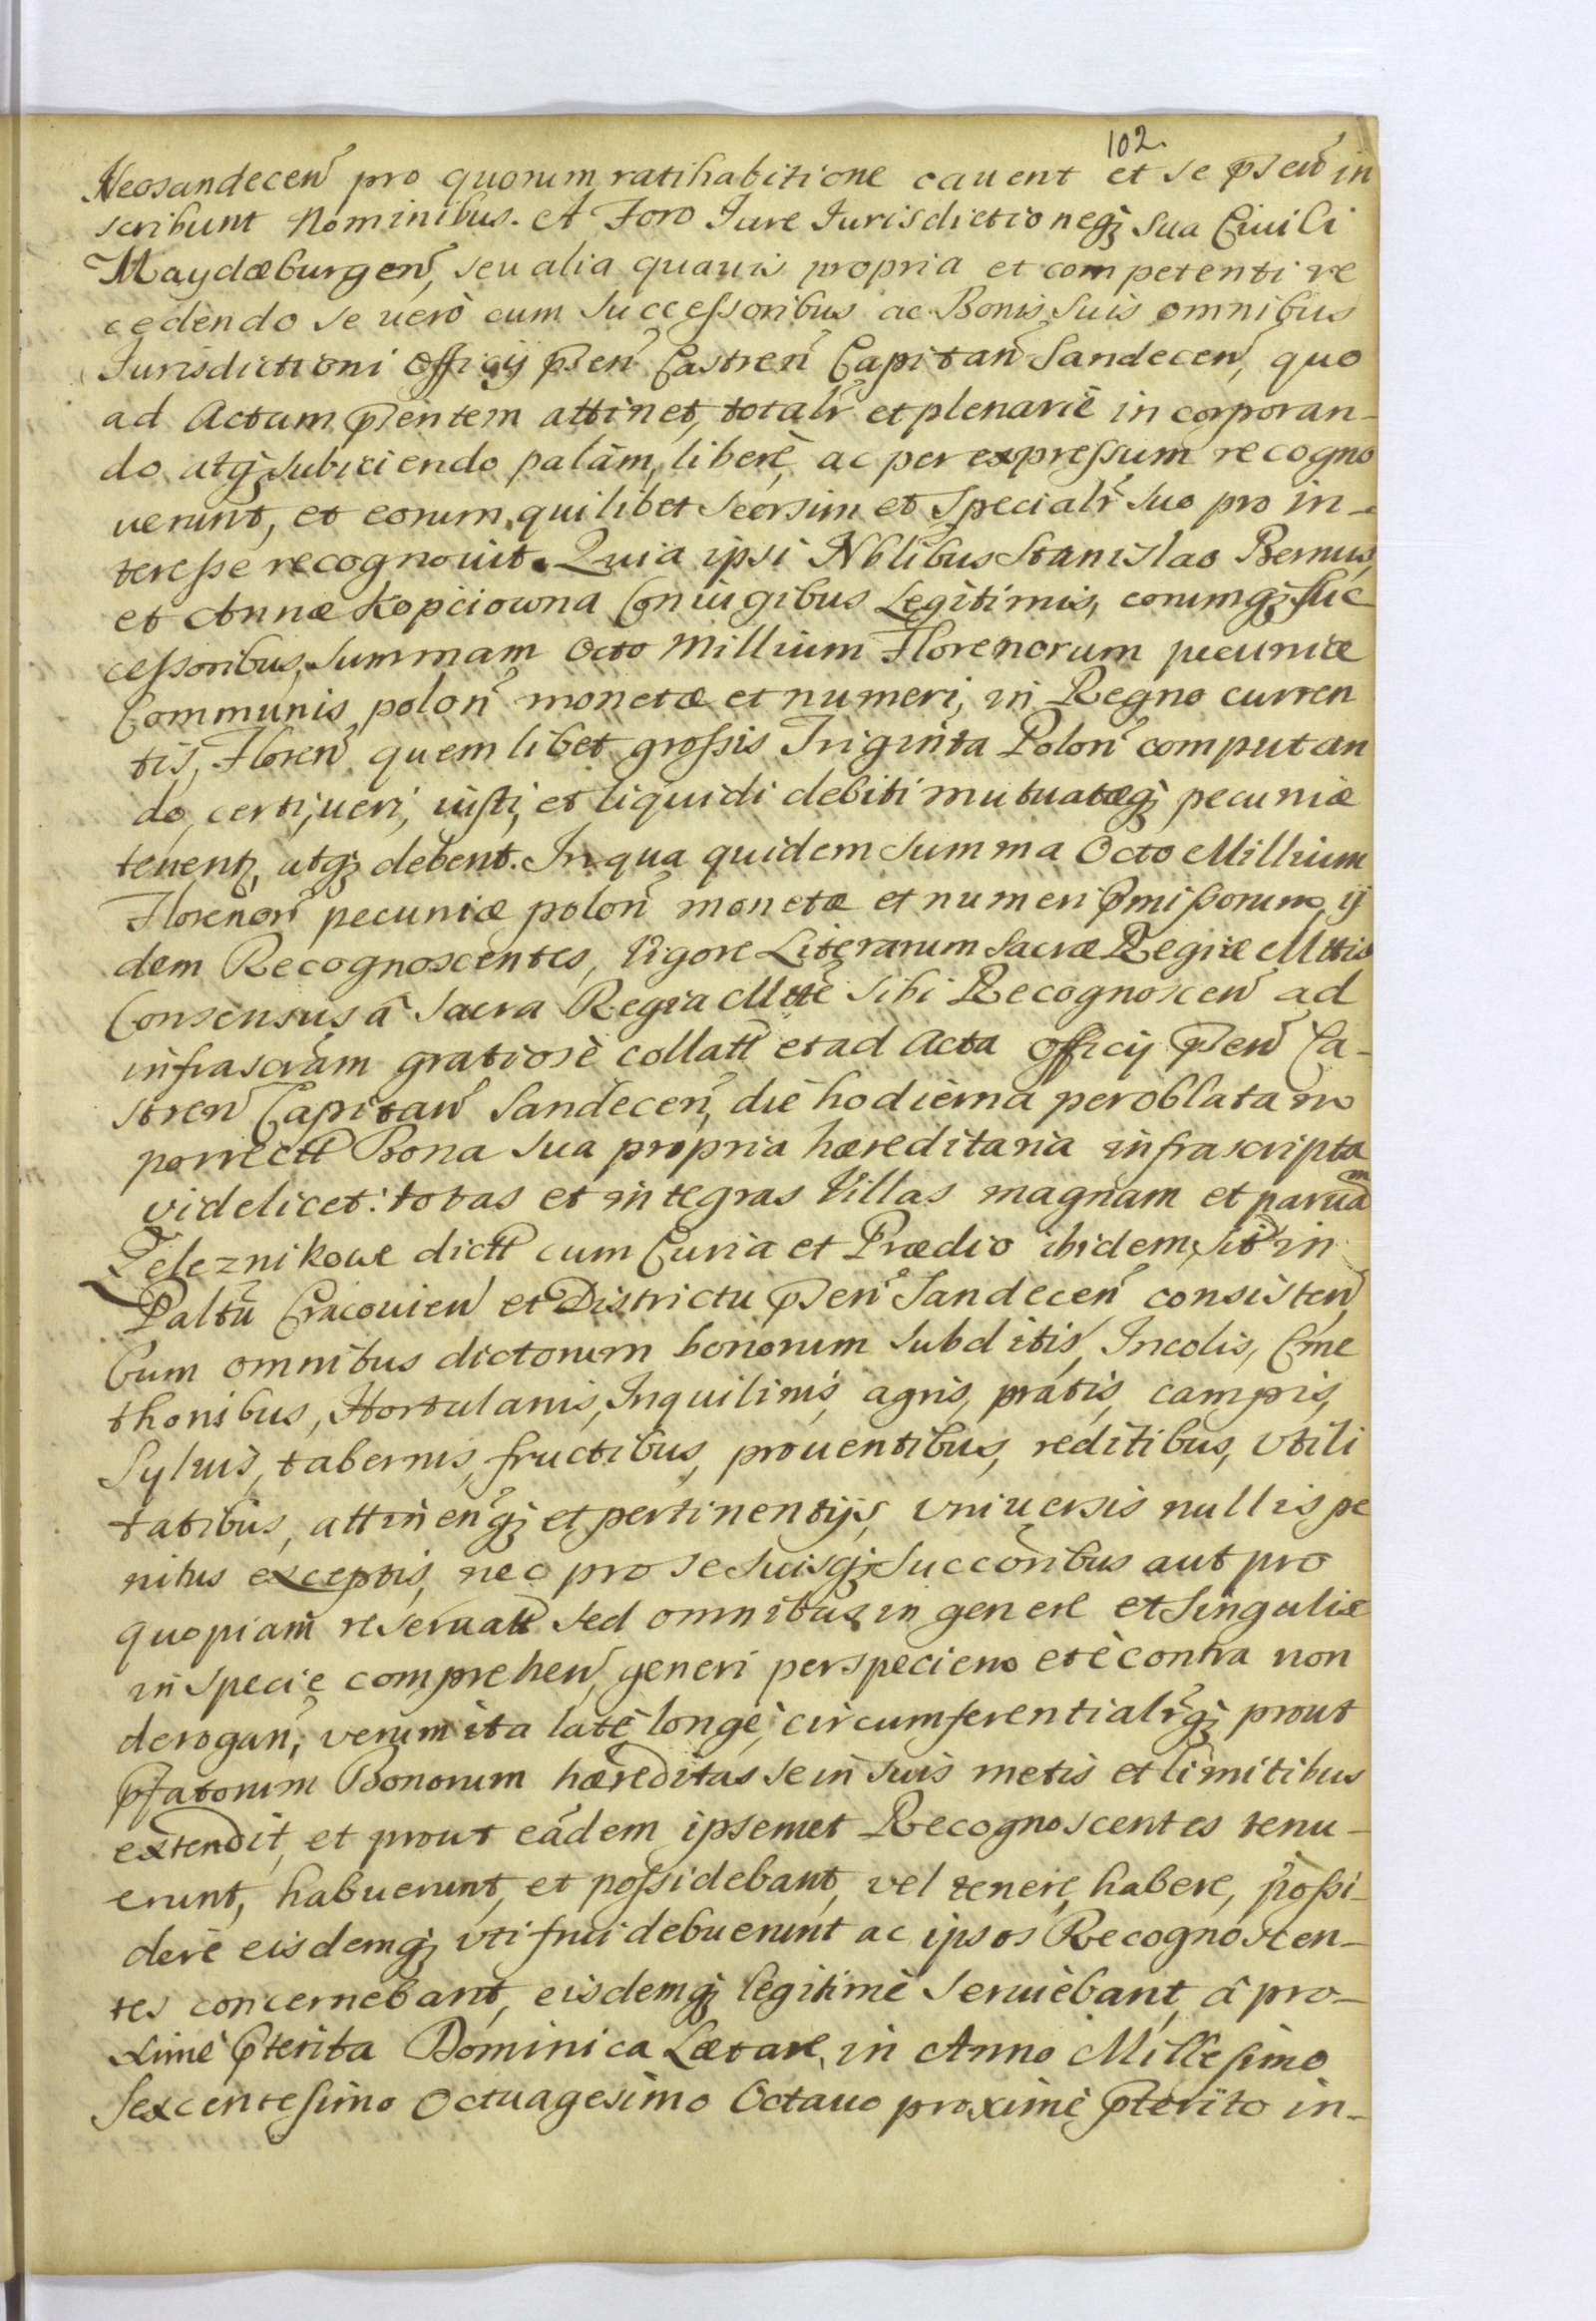 102.
Neosandecen̄ pro quorum ratihabitione cauent et se p̄sen̄ in
scribunt Nominibus. A Foro Iure Iurisdictioneq̨ sua Ciuili
Maydæburgen̄, seu alia quauis propria et competenti re
cedendo se uerò cum successoribus ac Bonis suis omnibus
Iurisdictioni Officij p̄sen̄ Castren̄ Capitan̄ Sandecen̄, quo
ad Actum p̄sentem attinet, totalr̄ et plenariè incorporan-
do atq̨ subiiciendo palàm, liberè, ac per expressum recogno
uerunt, et eorum quilibet seorsim et specialr̄ suo pro in-
teresse recognouit. Quia ipsi Nblibus Stanislao Bernus,
et Annæ Kopciowna Coniugibus Legitimis, eorumq̨ suc
cessoribus, summam Octo Millium Florenorum pecuniæ
Communis polon̄ monetæ et numeri, in Regno curren
tis, Floren̄ quemlibet grossis Triginta Polon̄ computan
do, certi, ueri, iusti, et liquidi debiti mutuatæq̨ pecuniæ
tenent, atq̨ debent. In qua quidem summa Octo Millium
Florenor̄ pecuniæ polon̄ monetæ et numeri p̄missorum, ij
dem Recognoscentes, Vigore Literarum Sacræ Regiæ Mttis
Consensus â Sacra Regia Mtte sibi Recognoscen̄ ad
infrascr̄am gratiosè collatt et ad Acta Officij p̄sen̄ Ca-
stren̄ Capitan̄ Sandecen̄, die hodierna per oblatam
porrectt Bona sua propria hæreditaria infrascripta
videlicet: totas et integras Villas magnam et paruam
Zeleznikowe dictt cum Curia et Prædio ibidem, sit̄ in
Paltū Cracouien̄ et Districtu p̄sen̄ Sandecen̄ consisten̄
Cum omnibus dictorum bonorum subditis, Incolis, Cme
thonibus, Hortulanis, Inquilinis, agris, pratis, campis,
Syluis, tabernis, fructibus, prouentibus, reditibus, vtili
tatibus, attinen̄q̨ et pertinentijs, vniuersis nullis pe
nitus exceptis, nec pro se suisq̨ succōribus aut pro
quopiam reseruatt sed omnibus in genere et singulis
in specie comprehen̄, generi per speciem et è contra non
derogan̄, verum ita latè, longè, circumferentialr̄q̨ prout
p̄fatorum Bonorum hæreditas se in suis metis et limitibus
extendit, et prout eádem ipsemet Recognoscentes tenu-
erunt, habuerunt, et possidebant, vel tenere, habere, possi-
dere eisdemq̨ vti frui debuerunt ac ipsos Recognoscen-
tes concernebant, eisdemq̨ legitimè seruiebant, â pro-
ximè p̄terita Dominica Lætare, in Anno Millesimo
Sexcentesimo Octuagesimo Octauo proximè p̄terito in-